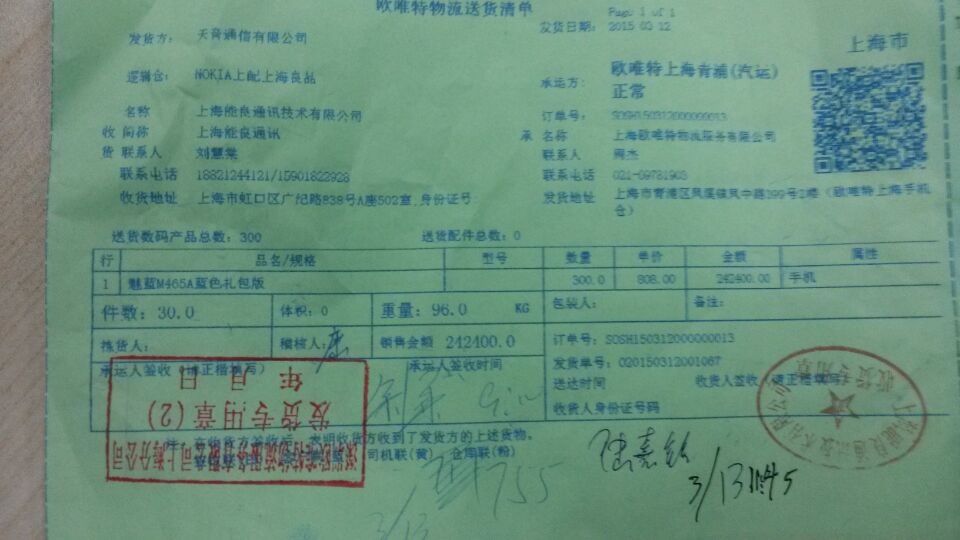 欧唯特物流送货清单
Page: 1 of 1
发货方： 天音通信有限公司 发货日期：2015 03 12
上海市
逻辑仓： NOKIA上配上海良品 承运方： 欧唯特上海青浦(汽运)
正常
名称 上海能良通讯技术有限公司 订单号： SOSH150312000000013
收 简称 上海能良通讯 承 名称 上海欧唯特物流服务有限公司
货 联系人 刘慧棠 联系人 周杰
联系电话 18821244121/15901822928 联系电话 021-69781903
收货地址 上海市虹口区广纪路838号A座502室,身份证号: 发货地址 上海市青浦区凤溪镇凤中路299号2楼（欧唯特上海手机仓）
送货数码产品总数：300 送货配件总数：0
行 品名/规格 型号 数量 单价 金额 属性
1 魅蓝M465A蓝色礼包版 300.0 808.00 242400.00 手机
件数：30.0 体积：0 重量：96.0 KG 包装人： 备注：
拣货人： 稽核人： 销售金额 242400.0 订单号：SOSH150312000000013
承运人签收（请正楷填写） 承运人签收时间 发货单号：020150312001067
送达时间 收货人签收（请正楷填写）
收货人身份证号码
注：在收货方签收后，表明收货方收到了发货方的上述货物。
司机联(黄) 仓库联(粉)
深圳欧唯特物流服务有限公司上海分公司
发货专用章(2)
年 月 日
收货专用章
755
3/13 11:45
3/13